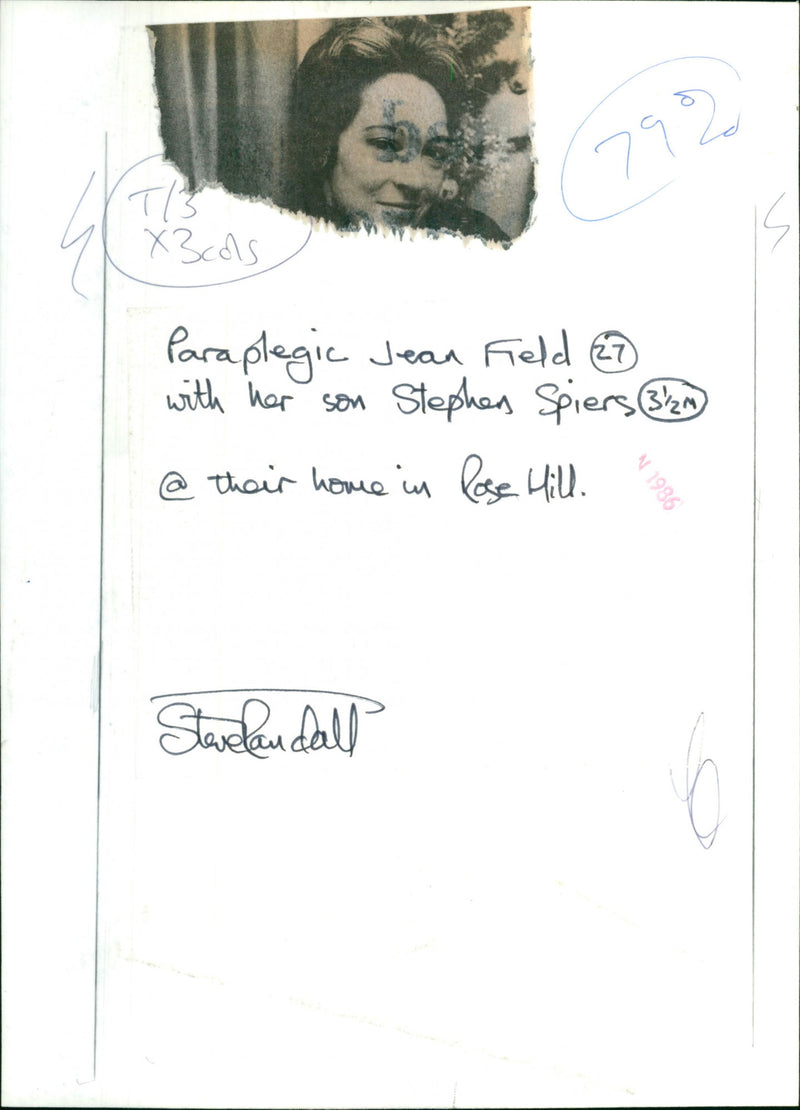 79%
T/3
x3cols
Paraplegic Jean Field 27
with her son Stephen Spiers 3½M
@ their home in Rose Hill.
N 1986
Steve Randall